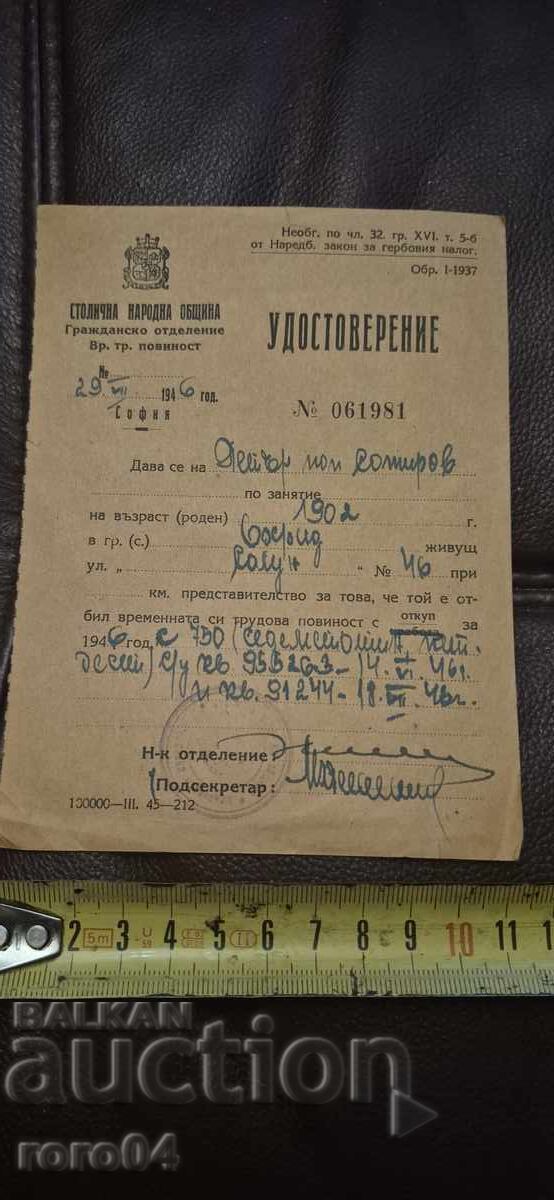 Необг. по чл. 32. гр. XVI. т. 5-б
от Наредб. закон за гербовия налог.
Обр. I-1937
СТОЛИЧНА НАРОДНА ОБЩИНА
Гражданско отделение
Вр. тр. повиност
УДОСТОВЕРЕНИЕ
№
29 VII 1946 год.
София
№ 061981
Дава се на Петър поп
по занятие
на възраст (роден) 1902 г.
в гр. (с.) Охрид живущ
ул. „ Солун “ № 46 при
км. представителство за това, че той е от-
бил временната си трудова повиност с откуп за
1946 год. с 730 (седемстотин
десет) с/у кв. 953263 - 14. VI. 46 г.
и кв. 91244 - 18. VII. 46 г.
Н-к отделение:
(Подсекретар:
100000—III. 45—212
2 5m 3 4 5 II 6 7 8 9 10 11 1
BALKAN
auction
roro04